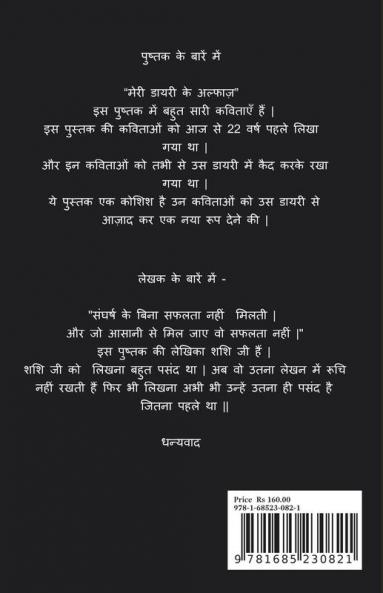 पुष्तक के बारें में
“मेरी डायरी के अल्फाज़”
इस पुष्तक में बहुत सारी कविताएँ हैं |
इस पुस्तक की कविताओं को आज से 22 वर्ष पहले लिखा
गया था |
और इन कविताओं को तभी से उस डायरी में कैद करके रखा
गया था |
ये पुस्तक एक कोशिश है उन कविताओं को उस डायरी से
आज़ाद कर एक नया रूप देने की |
लेखक के बारें में -
"संघर्ष के बिना सफलता नहीं मिलती |
और जो आसानी से मिल जाए वो सफलता नहीं |"
इस पुष्तक की लेखिका शशि जी हैं |
शशि जी को लिखना बहुत पसंद था | अब वो उतना लेखन में रूचि
नहीं रखती हैं फिर भी लिखना अभी भी उन्हें उतना ही पसंद है
जितना पहले था ||
धन्यवाद
Price Rs 160.00
978-1-68523-082-1
9 781685 230821